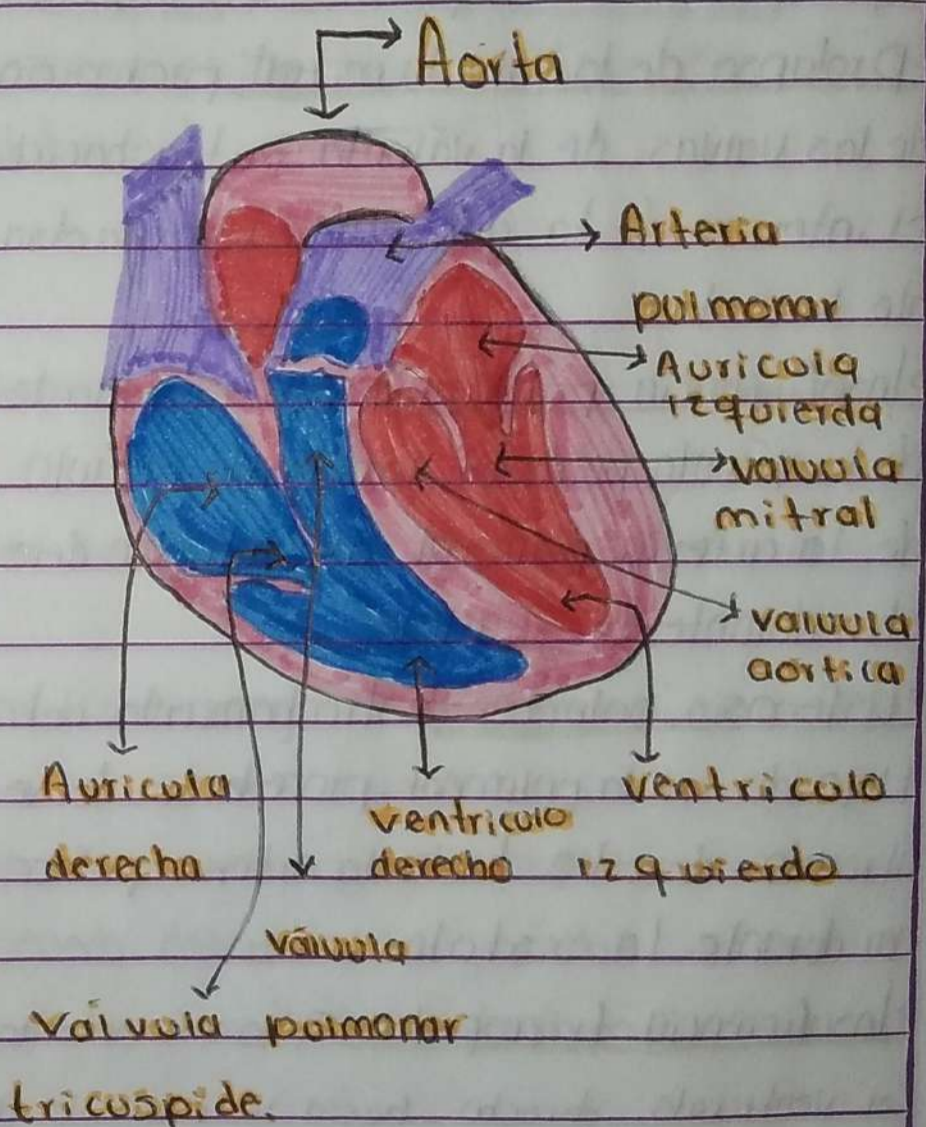 Aorta
Arteria
pulmonar
Auricula
izquierda
valvula
mitral
valvula
aortica
Auricula
derecha
ventriculo
derecho
ventriculo
izquierdo
válvula
pulmonar
Válvula
tricuspide.